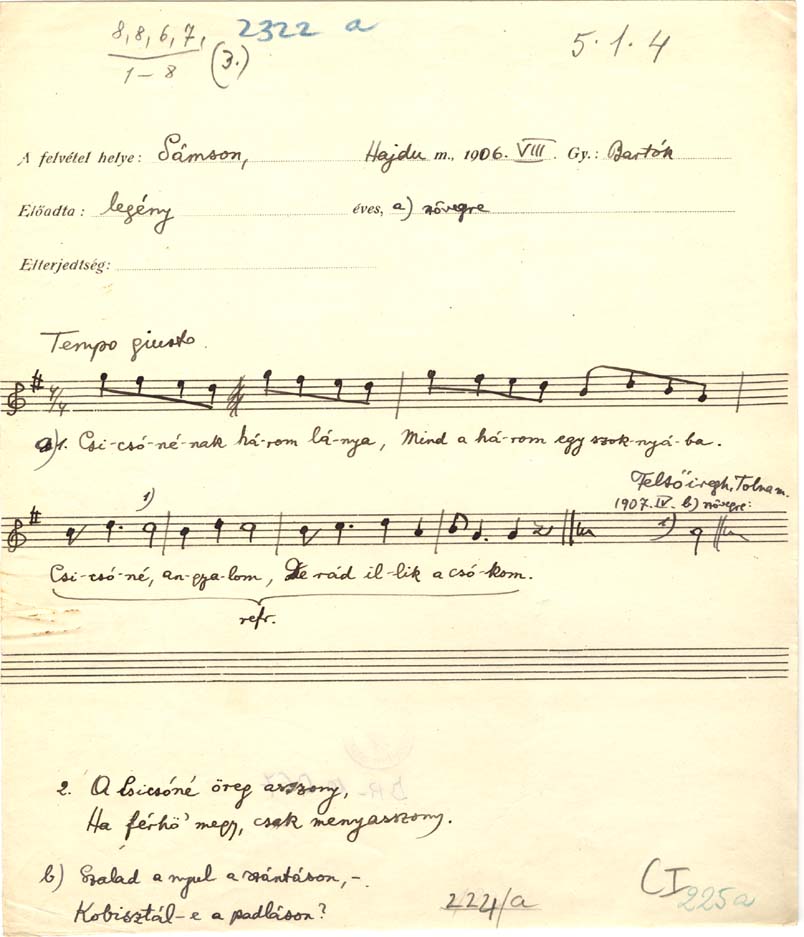 8, 8, 6, 7, 2322 a
1-8 (3.) 5.1.4
A felvétel helye: Sámson, Hajdu m., 1906. VIII. Gy.: Bartók
Előadta: legény éves, a) szövegre
Elterjedtség:
Tempo giusto.
4/4
a) 1. Csi-csó-né-nak há-rom lá-nya, Mind a há-rom egy szok-nyá-ba.
Felsőiregh, Tolna m.
1907. IV. b) szövegre:
1) 1)
Csi-csó-né, an-gya-lom, De rád il-lik a csó-kom.
refr.
2. A Csicsóné öreg asszony,
Ha férhő megy, csak menyasszony.
b) Szalad a nyul a szántáson, -.
Kobisztál-e a padláson?
224/a CI
225a